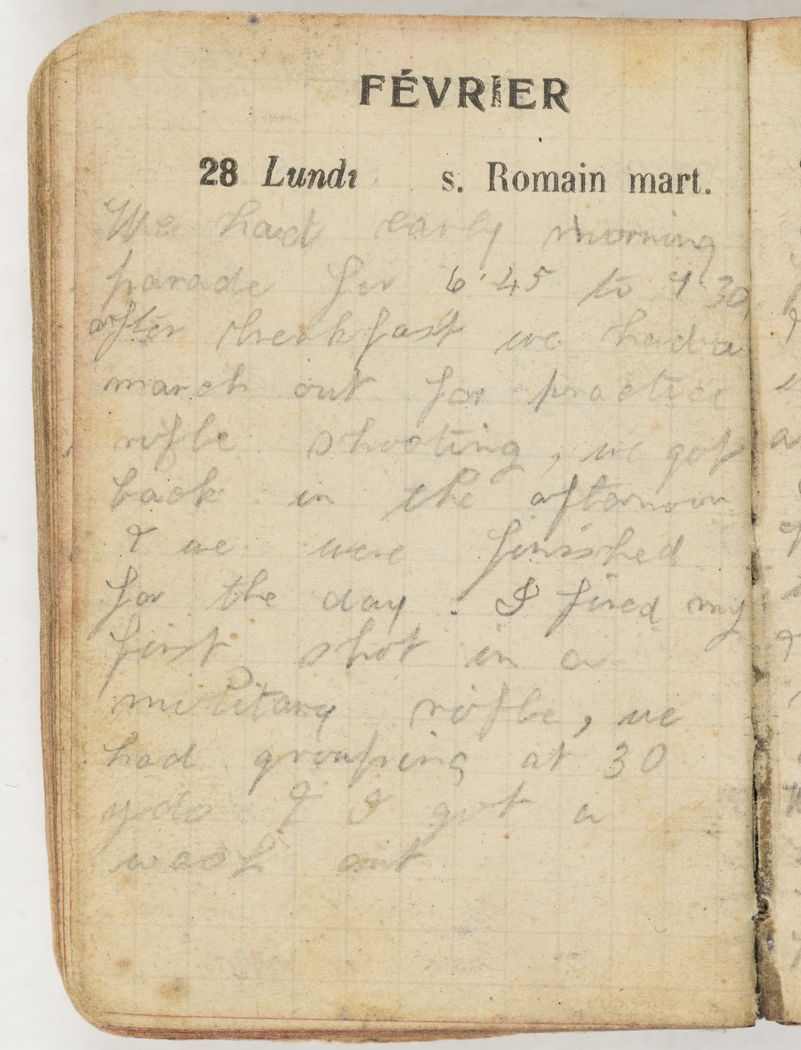 FÉVRIER
28 Lundi s. Romain mart.
We had early morning
parade for 6.45 to 7.30
after breakfast we had a
march out for practice
rifle shooting, we got
back in the afternoon
& we were finished
for the day. I fired my
first shot in a
military rifle, we
had grouping at 30
yds & I got a
wash out